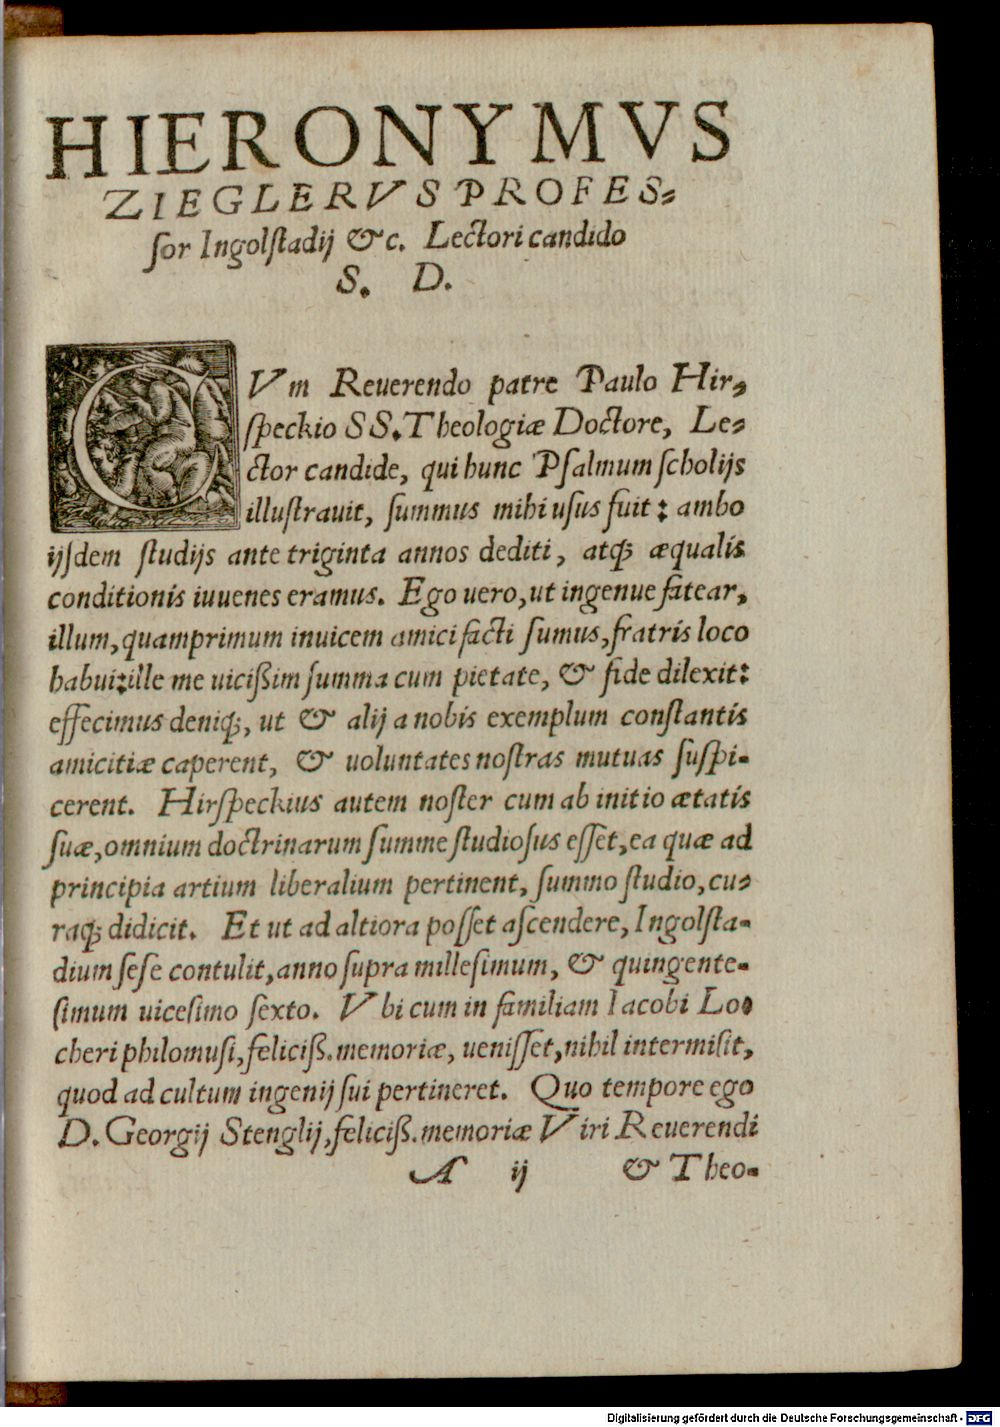 HIERONYMVS
ZIEGLERVS PROFES-
ſor Ingolſtadij &c. Lectori candido
S. D.
CVm Reuerendo patre Paulo Hir-
ſpeckio SS. Theologiæ Doctore, Le-
ctor candide, qui hunc Pſalmum ſcholijs
illuſtrauit, ſummus mihi uſus fuit: ambo
ijſdem ſtudijs ante triginta annos dediti, atq; æqualis
conditionis iuuenes eramus. Ego uero, ut ingenue fatear,
illum, quamprimum inuicem amici facti ſumus, fratris loco
habui: ille me uicißim ſumma cum pietate, & fide dilexit:
effecimus deniq;, ut & alij a nobis exemplum conſtantis
amicitiæ caperent, & uoluntates noſtras mutuas ſuſpi-
cerent. Hirſpeckius autem noſter cum ab initio ætatis
ſuæ, omnium doctrinarum ſumme ſtudioſus eſſet, ea quæ ad
principia artium liberalium pertinent, ſummo ſtudio, cu-
raq; didicit. Et ut ad altiora poſſet aſcendere, Ingolſta-
dium ſeſe contulit, anno ſupra milleſimum, & quingente-
ſimum uiceſimo ſexto. Vbi cum in familiam Iacobi Lo-
cheri philomuſi, feliciß. memoriæ, ueniſſet, nihil intermiſit,
quod ad cultum ingenij ſui pertineret. Quo tempore ego
D. Georgij Stenglij, feliciß. memoriæ Viri Reuerendi
A ij & Theo-
Digitalisierung gefördert durch die Deutsche Forschungsgemeinschaft - DFG